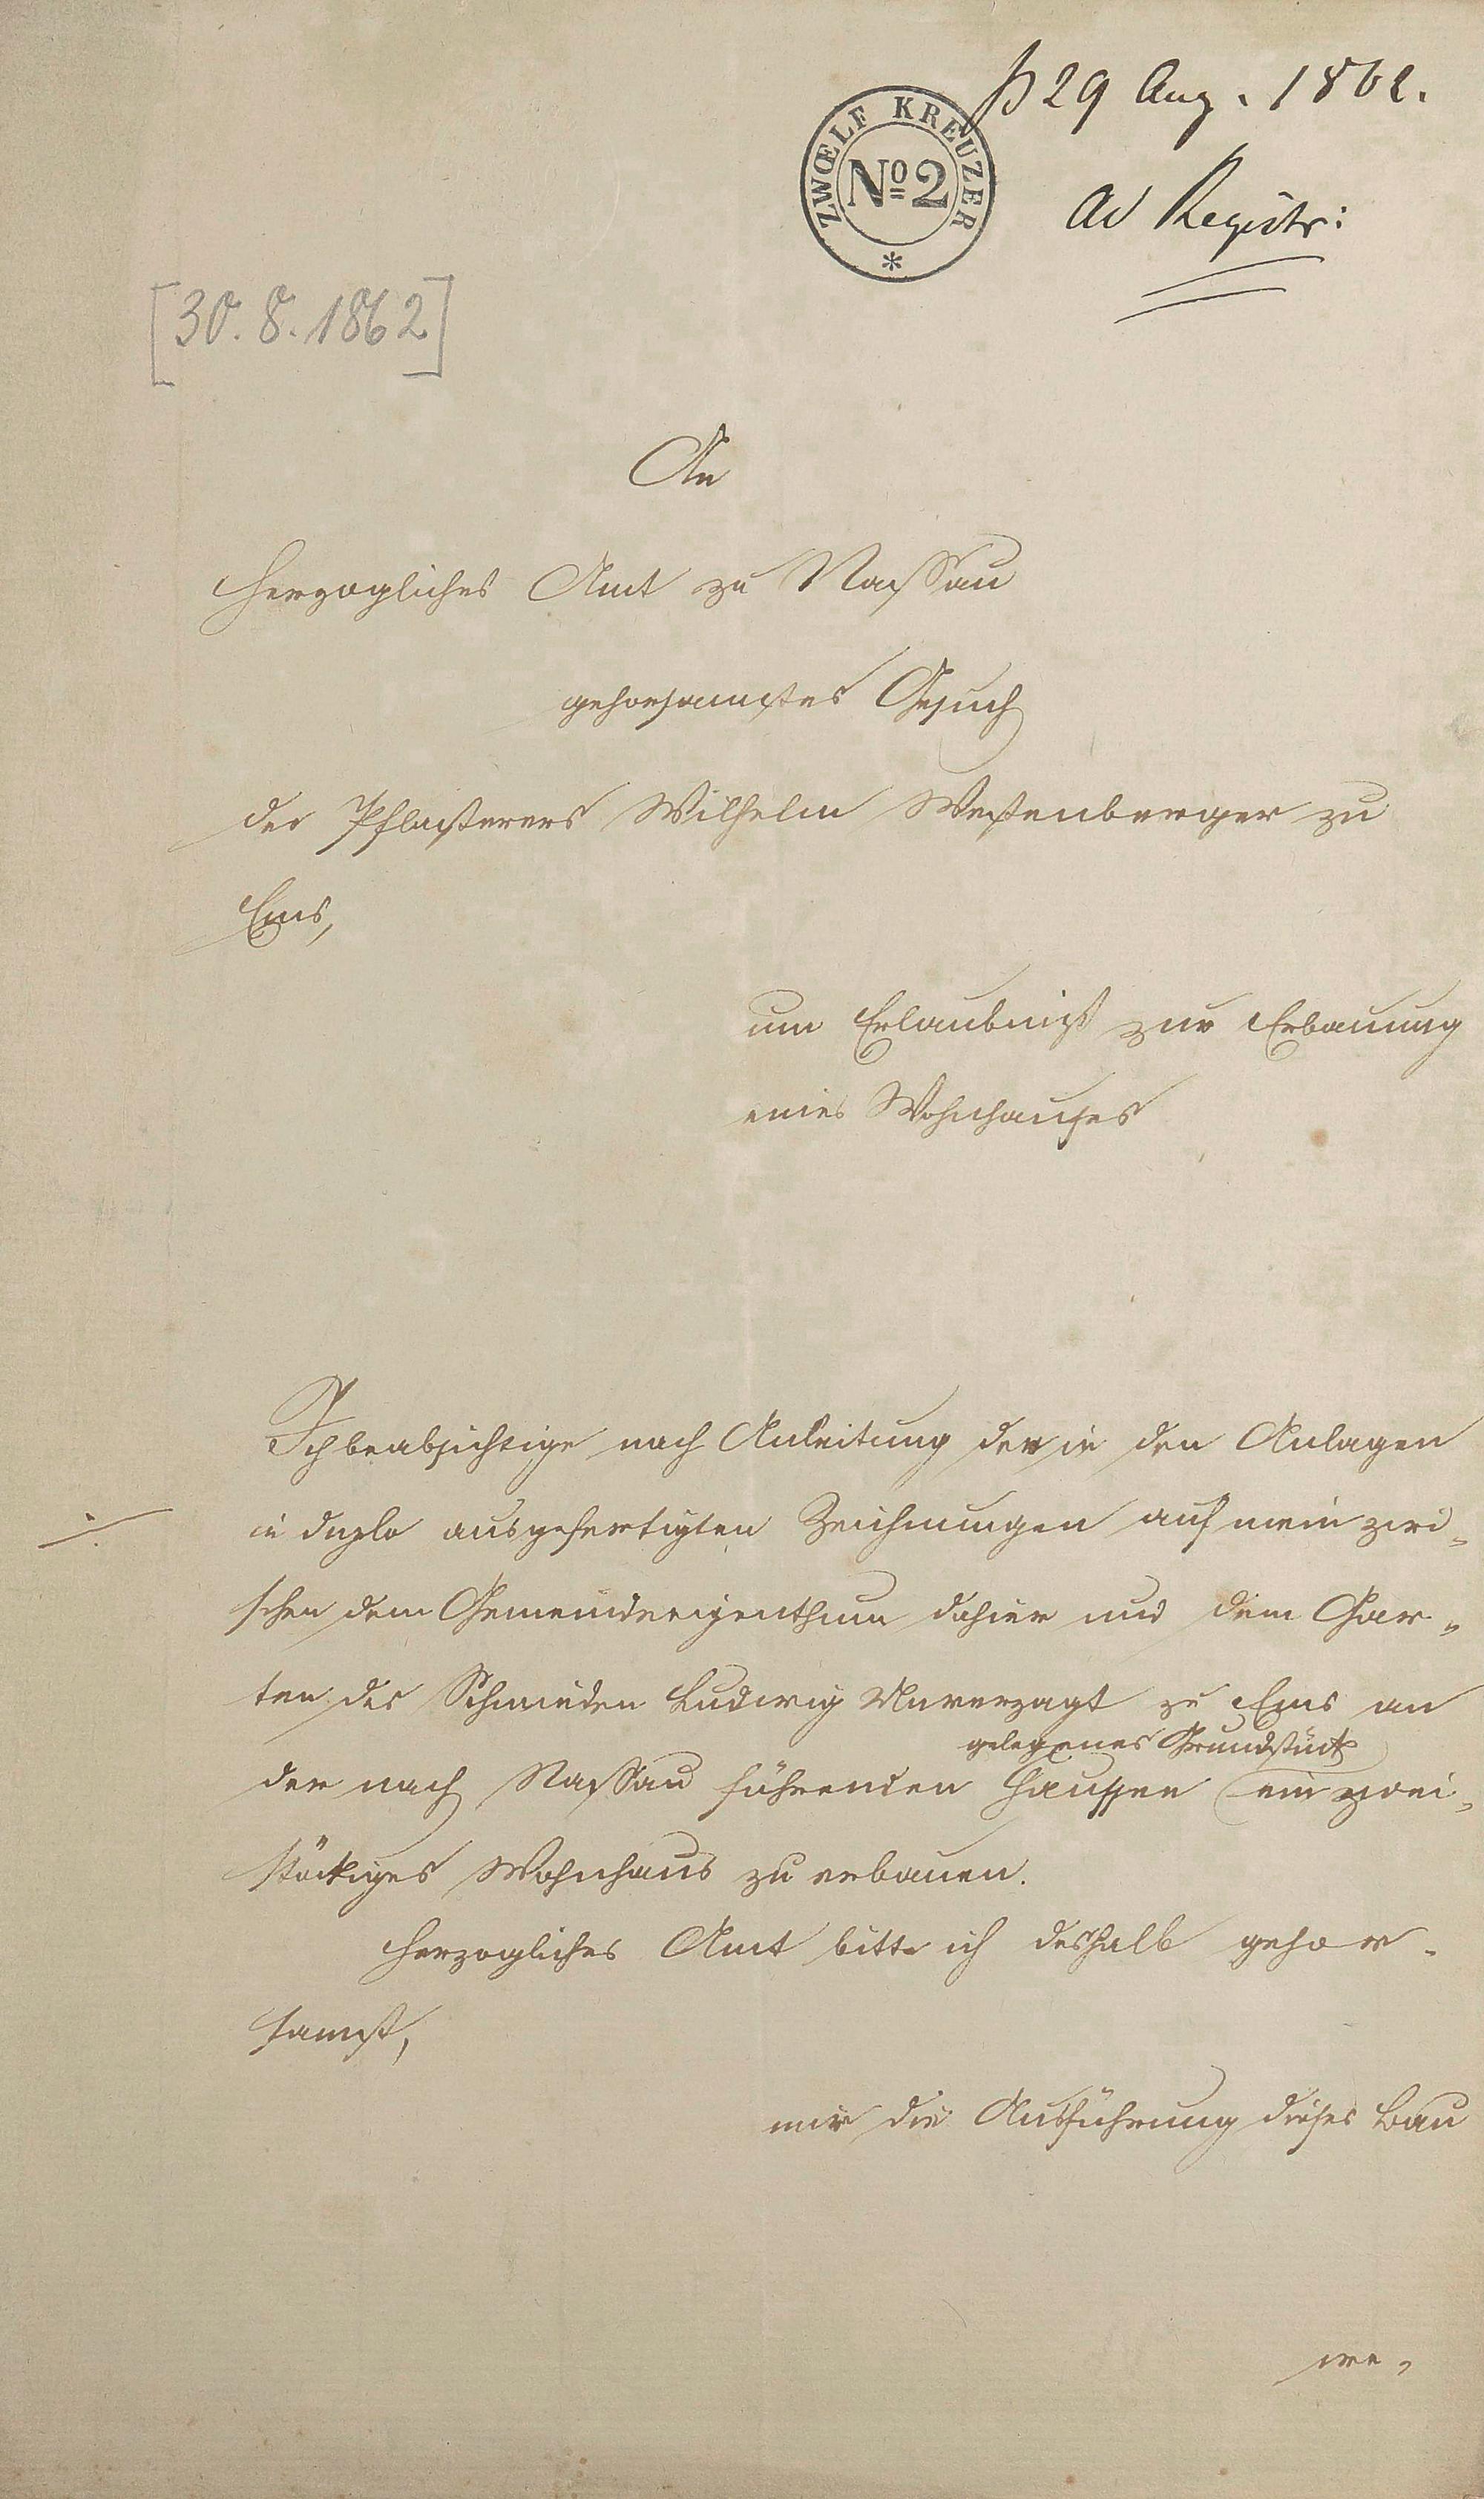 29 Aug. 1862.
ZWŒLF KREUZER
Nº 2
*
ad Registr:
[30. 8. 1862]
An
Herzogliches Amt zu Nassau
gehorsamstes Gesuch
des Pflasterers Wilhelm Westenberger zu
Ems,
um Erlaubniß zur Erbauung
eines Wohnhauses
Ich beabsichtige nach Anleitung der in den Anlagen
in duplo ausgefertigten Zeichnungen auf mein zwi-
schen dem Gemeindeeigenthum dahier und dem Gar-
ten des Schmieden Ludwig Unverzagt zu Ems an
gelegenes Grundstück
der nach Nassau führenden ein zwei-
stöckiges Wohnhaus zu erbauen.
Herzogliches Amt bitte ich deshalb gehor-
samst,
mir die Ausführung dieses Bau
we-